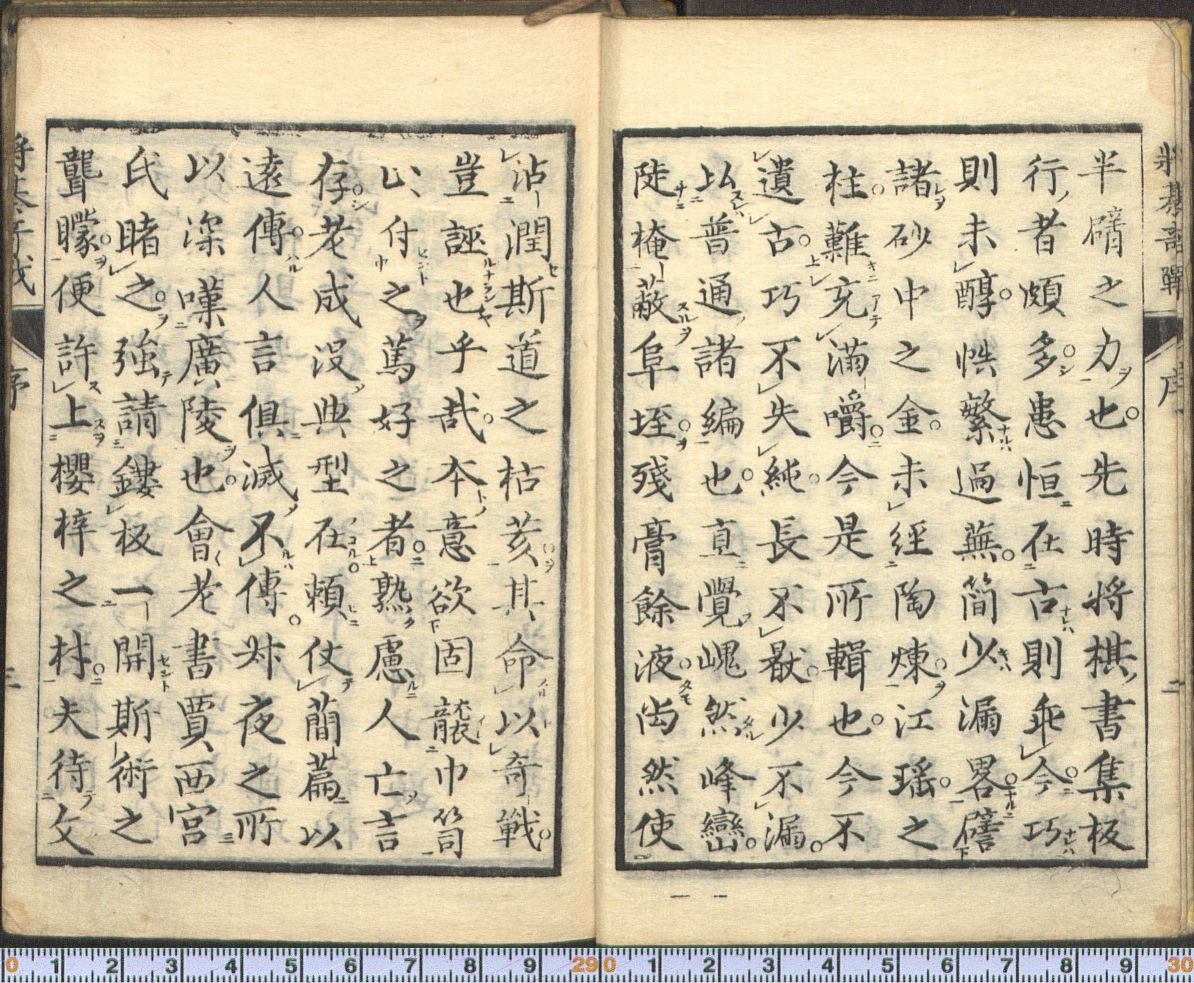 將棊奇戰 序 二
半臂之力也先時將棋書集板
行者頗多患恒在古則乖今巧
則未醇恠繁過蕪簡少漏畧譬
諸砂中之金未經陶煉江瑶之
柱難充滿嚼今是所輯也今不
遺古巧不失純長不厭少不漏
以普通諸編也直覺嵬然峰巒
陡掩蔽阜垤殘膏餘液尚然使
沾潤斯道之枯荄其命以奇戰
豈誣也乎哉本意欲固襲巾笥
以付之篤好之者熟慮人亡言
存老成没典型在頼仗蕳篇以
遠傳人言俱滅不傳叔夜之所
以深嘆廣陵也會老書賈西宮
氏睹之強請鏤板一開斯術之
聾矇便許上櫻梓之材夫待文
序 三
0 1 2 3 4 5 6 7 8 9 29 0 1 2 3 4 5 6 7 8 9 30